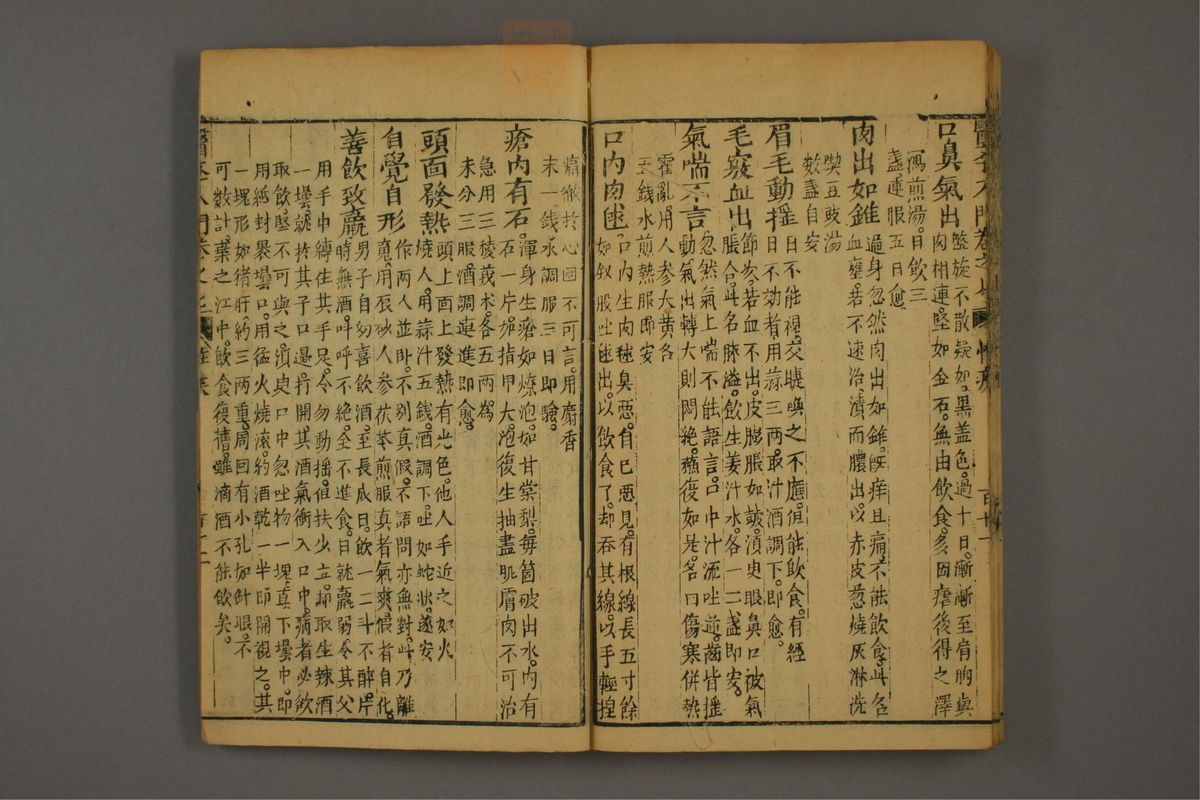 口鼻氣出
盤旋不散疑如黑盖色。過十日漸漸至肩胸與
肉相連堅如金石。無由飲食。多因瘧後得之澤
瀉煎湯。日飲三
盞連服五日愈
肉出如錐
遍身忽然肉出如錐。既痒且痛不能飲食此名
血壅。若不速治。潰而膿出。以赤皮葱燒灰淋洗
喫豆豉湯
數盞自安
眉毛動摇
目不能視交睫喚之不應。但能飲食。有經
日不効者用蒜三两取汁酒調下。即愈。
毛竅血出
節次若血不出。皮膨脹如皷。湏臾眼鼻口被氣
脹合此名脉溢飲生姜汁水。各一二盞即安。
氣喘不言
忽然氣上喘不能語言。口中汁流吐逆。齒皆摇
動氣出轉大則悶絶。蘓復如是。名曰傷寒併熱
霍亂用人参大黄各
五錢水煎熱服即安
口内肉毬
口内生肉毬臭惡。自己惡見。有根線長五寸餘
如釵股吐毬出。以飲食了。却吞其線。以手輕捏
痛徹於心困不可言。用麝香
末一錢水調服三日即驗
瘡内有石
渾身生瘡如燎泡。如甘棠梨。每箇破出水。内有
石一片。如指甲大。泡復生抽盡肌膚肉不可治
急用三稜莪术。各五两爲
末分三服。酒調連進即愈。
頭面發熱
頭上面上發熱有光色。他人手近之如火
燒人。用蒜汁五錢。酒調下。吐如蛇状。遂安
自覺自形
作两人並卧。不别真假。不語問亦無對。此乃離
䰟。用辰砂人参茯苓煎服真者氣爽。假者自化。
善飲致羸
男子自幼喜飲酒。至長成日。飲一二斗不醉。片
時無酒。呌呼不絶。全不進食。日就羸弱令其父
用手巾縛住其手足。令勿動摇。但扶少立。却取生辣酒
一壜。就於其子口邊。打開。其酒氣衝入口中。病者必飲
取飲。堅不可與之。湏臾口中忽吐物一塊。直下壜中。即
用紙封褁壜口。用猛火燒滚。約酒乾一半即開視之。其
一塊形如猪肝。約三两重。周回有小孔如針眼。不
可數計。棄之江中。飲食復舊。雖滴酒不能飲矣。